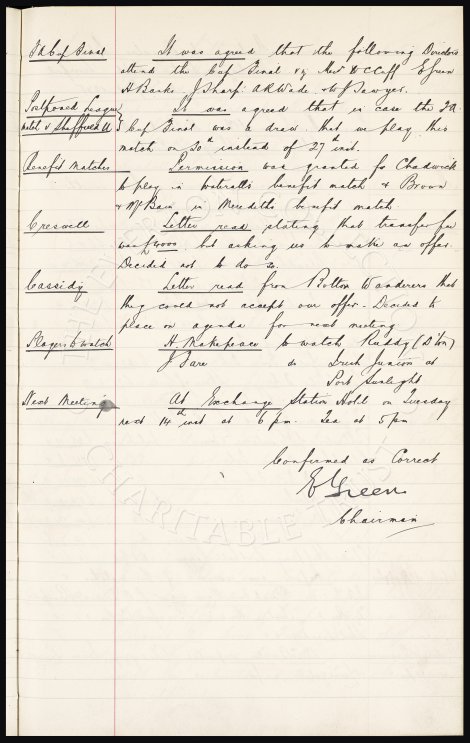 F A Cup Final It was agreed that the following Directors
attend the Cup Final Messrs W C Cuff E Green
H Banks J Sharp A R Wade & W J Sawyer.
Postponed League It was agreed that in case the FA
match v Sheffield U Cup Final was a draw that we play this
match on 30th instead of 27th inst.
Benefit Matches Permission was granted for Chadwick
to play in benefit match & Brown
& McBain in Merediths benefit match
Creswell Letter read stating that transfer fee
was £4000 but asking us to make an offer.
Decided not to do so.
Cassidy Letter read from Bolton Wanderers that
they could not accept our offer. Decided to
place on agenda for next meeting
Players to watch H. Makepeace to watch Ruddy (D'ton)
J Fare do Irish Juniors at
Port Sunlight
Next Meeting At Exchange Station Hotel on Tuesday
next 14th inst at 6 pm. Tea at 5 pm
Confirmed as Correct
E Green
Chairman
CHARITABLE TRUST